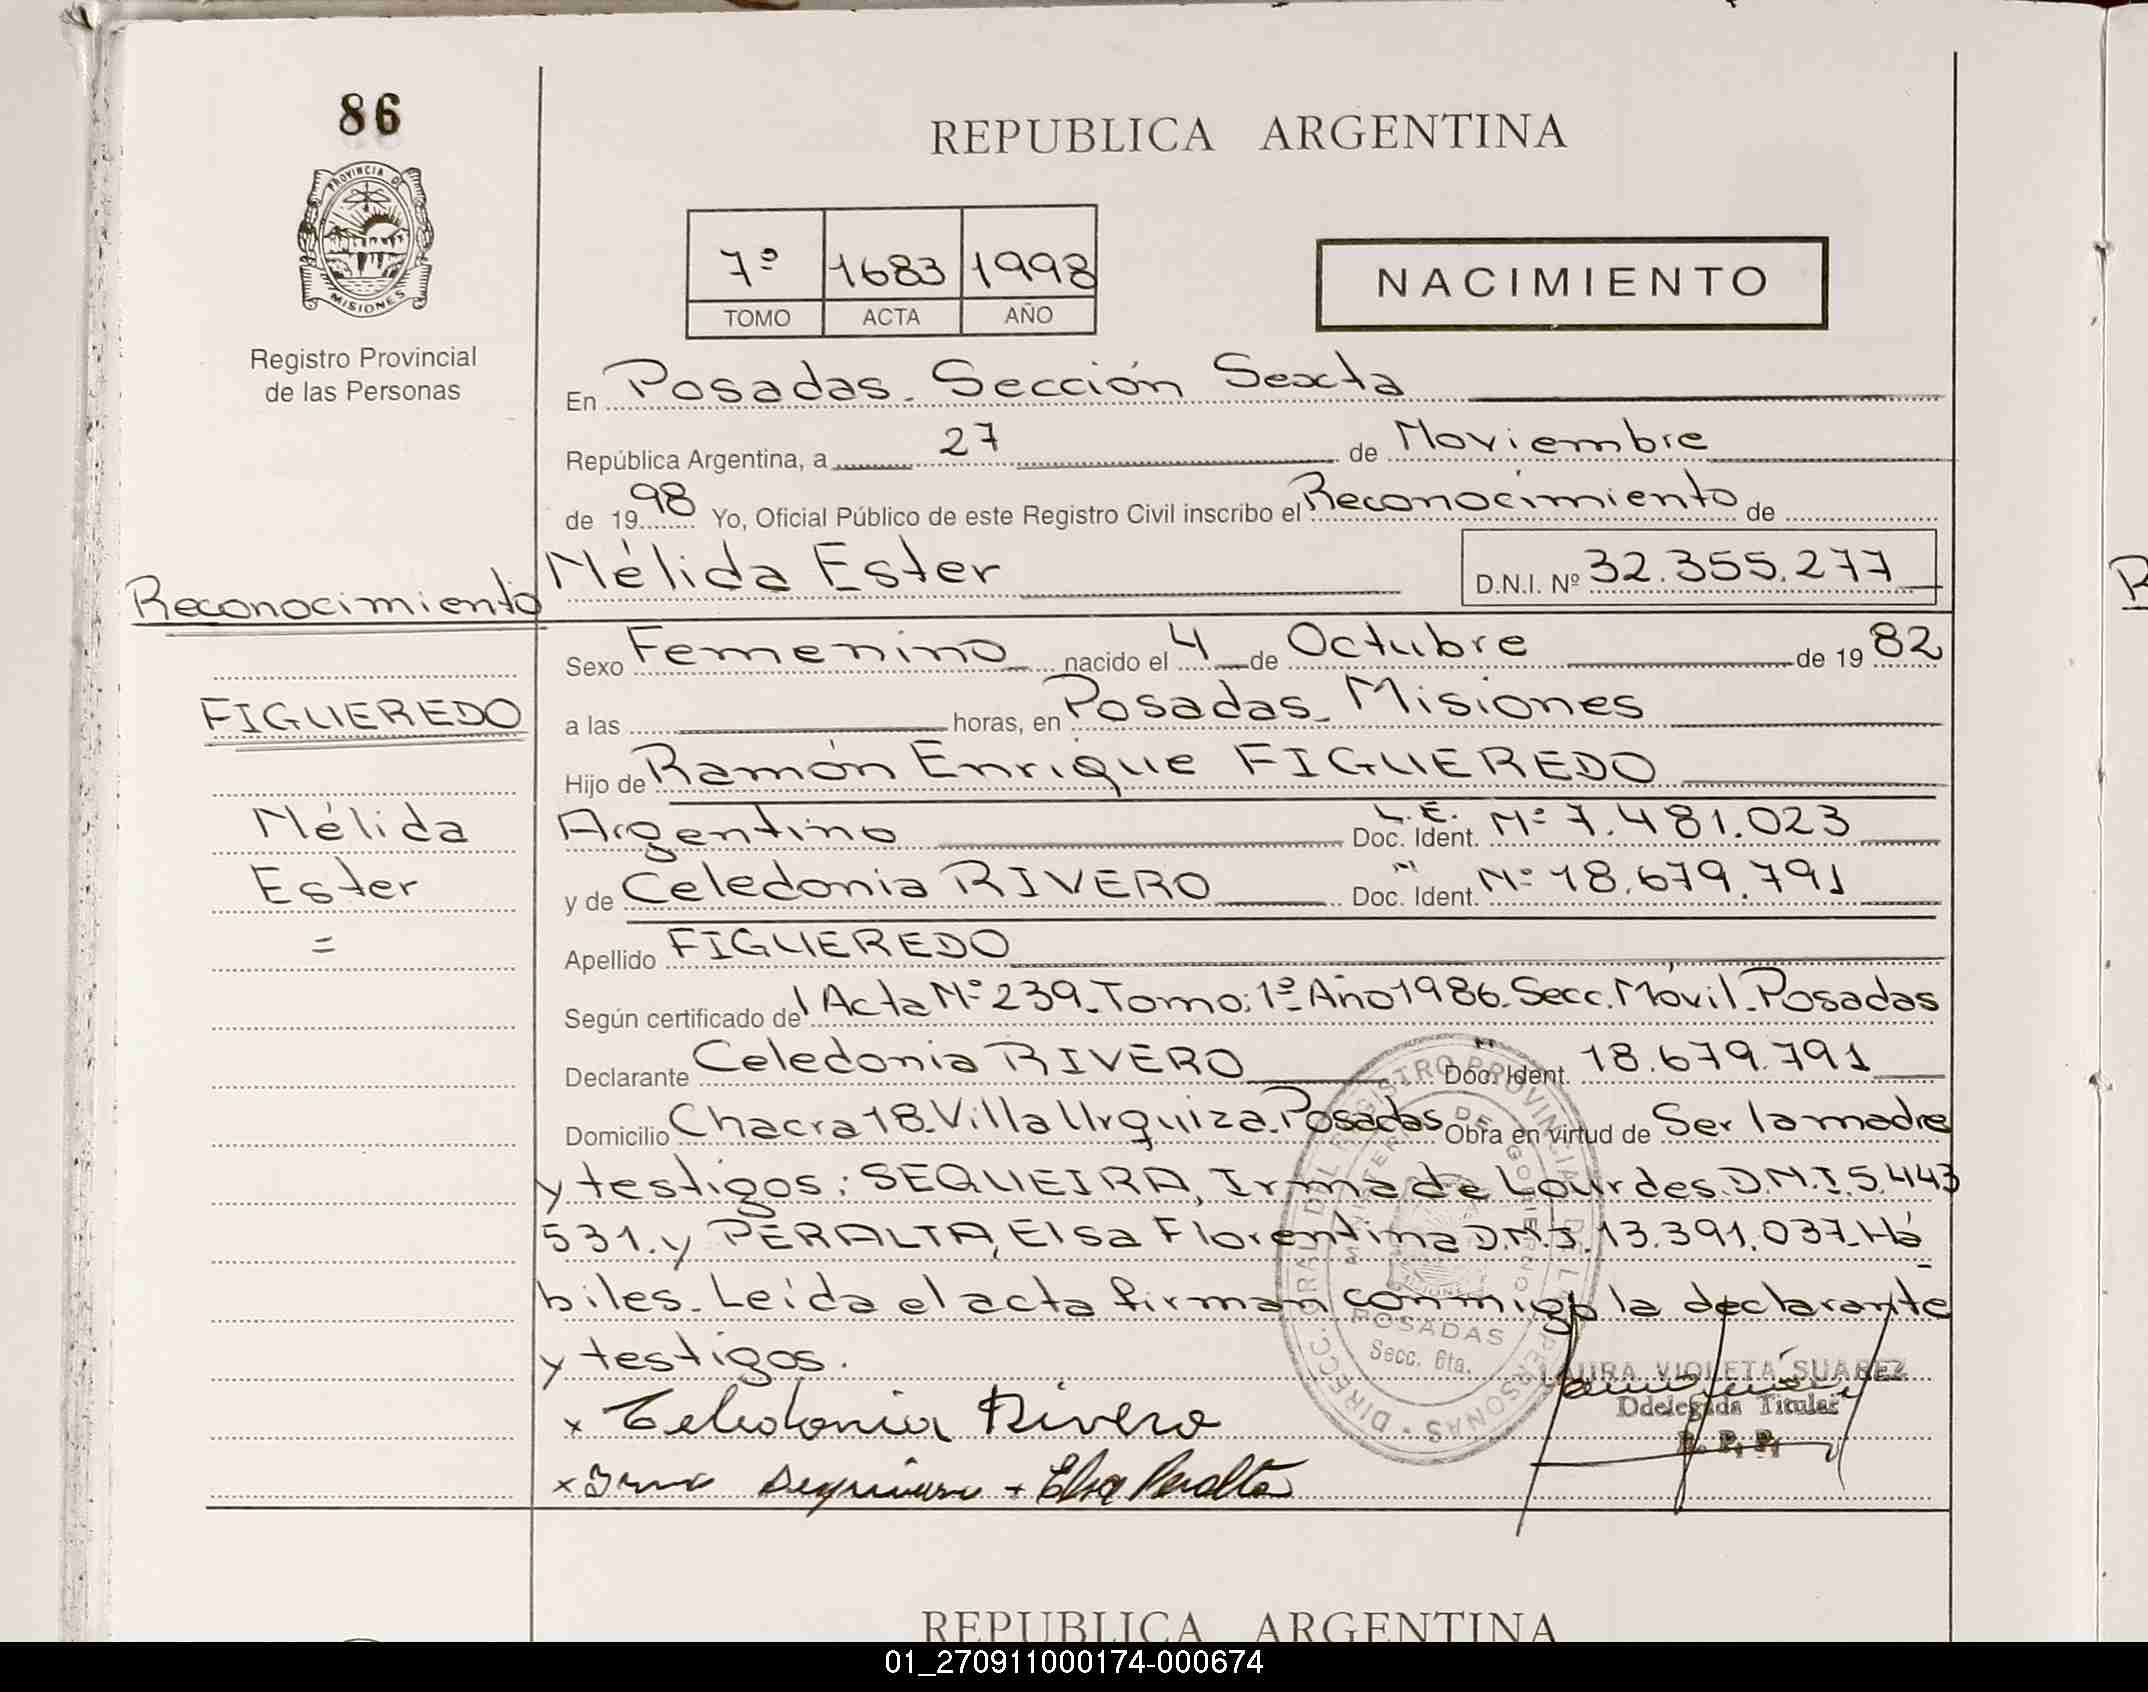 86
REPUBLICA ARGENTINA
PROVINCIA DE
MISIONES
Registro Provincial
de las Personas
7º 1683 1998
TOMO ACTA AÑO
NACIMIENTO
En Posadas. Sección Sexta
República Argentina, a 27 de Noviembre
de 1998 Yo, Oficial Público de este Registro Civil inscribo el Reconocimiento de
Nélida Ester D.N.I. Nº 32.355.277
Reconocimiento
FIGUEREDO
Nélida
Ester
=
Sexo Femenino nacido el 4 de Octubre de 1982
a las horas, en Posadas. Misiones
Hijo de Ramón Enrique FIGUEREDO
Argentino L.E. Doc. Ident. Nº 7.481.023
y de Celedonia RIVERO Doc. Ident. " Nº 18.679.791
Apellido FIGUEREDO
Según certificado del Acta Nº 239. Tomo: 1º Año 1986. Secc. Móvil. Posadas
Declarante Celedonia RIVERO Doc. Ident. " 18.679.791
Domicilio Chacra 18. Villa Urquiza. Posadas Obra en virtud de Ser la madre
y testigos: SEQUEIRA, Irma de Lourdes. D.N.I. 5.443
531. y PERALTA, Elsa Florentina D.N.I. 13.391.037. Há
biles. Leída el acta firman conmigo la declarante
y testigos.
DIRECC. GRAL. DEL REGISTRO PROVINCIAL DE LAS PERSONAS
MINISTERIO DE GOBIERNO
POSADAS
Secc. 6ta.
LAURA VIOLETA SUAREZ
Ddelegada Titular
R. P. P.
x Celedonia Rivero
x Irma Sequeira + Elsa Peralta
REPUBLICA ARGENTINA
01_270911000174-000674